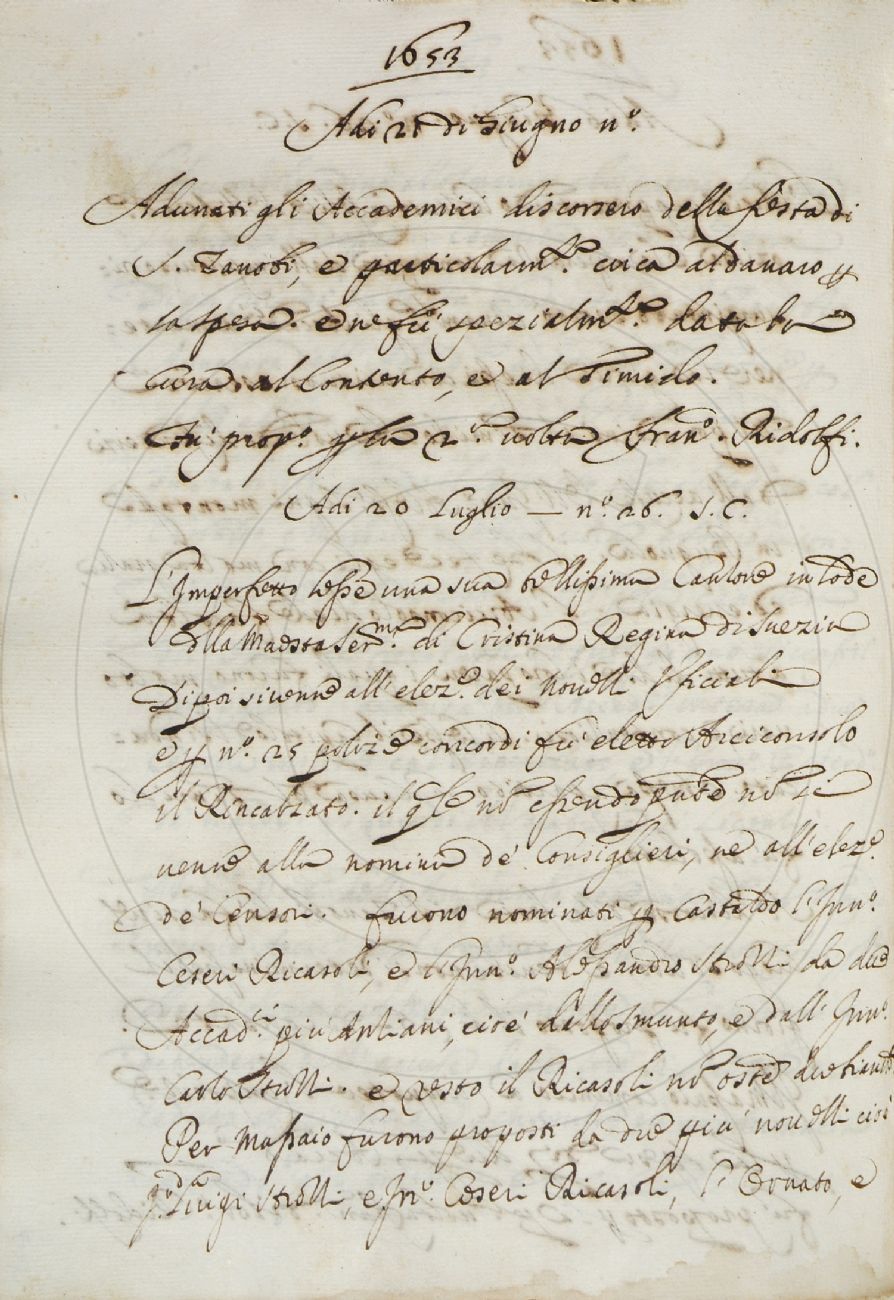 1653
Adi 21 di Giugno n.º
Adunati gli Accademici discorsero della festa di
S. Zanobi, e particolarm.te circa al danaro p
la spesa. e ne fù spezialm.te data la
cura al Consento, e al Timido.
Fu prop.º p la 2.ª uolta Fran.º Ridolfi.
Adi 20 Luglio — n.º 26. S. C.
L'Imperfetto lesse una sua bellissima Canzone in lode
della Maestà Ser.ma di Cristina Regina di Suezia
Dipoi si uenne all'elez.e dei nouelli Vficiali
e p n.º 25 polize concordi fù eletto Arciconsolo
il Rincalzato. il qle nō essendo pnte nō si
uenne alla nomina de' Consiglieri, ne all'elez.e
de' Censori. furono nominati p Castaldo l'Inn.º
Ceseri Ricasoli, e l'Inn.º Alessandro Strozzi da due
Accad.ci più Anziani, cioè dallo Smunto, e dall'Inn.º
Carlo Strozzi. e restò il Ricasoli nō oste due bianche
Per Massaio furono proposti da due più nouelli cioè
Luigi Strozzi, e In.º Ceseri Ricasoli, l'Ornato, e